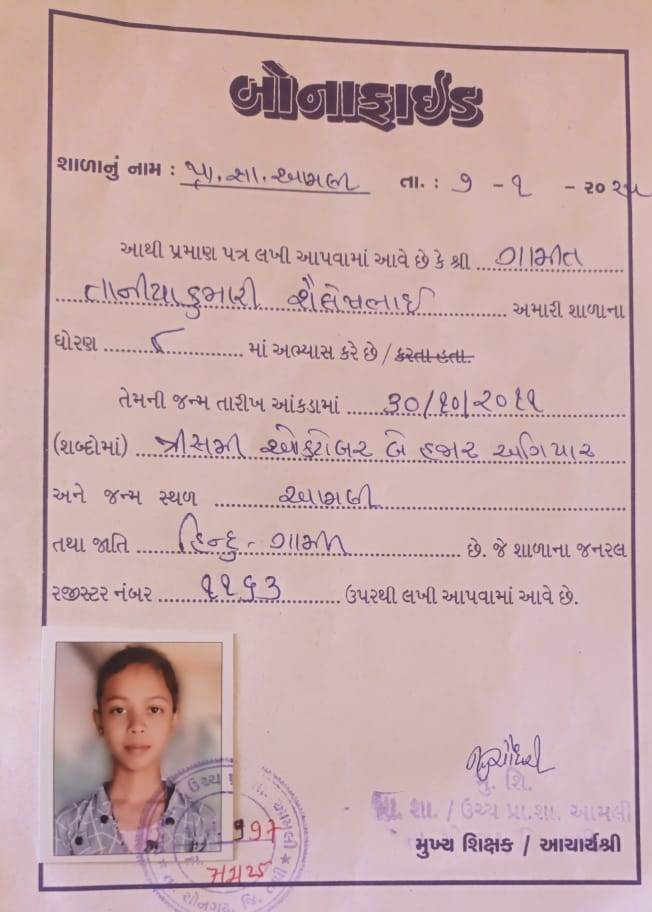 બોનાફાઈડ
શાળાનું નામ : પ્રા. શા. આમલી તા. : ૭ - ૧ - ૨૦૨૫
આથી પ્રમાણ પત્ર લખી આપવામાં આવે છે કે શ્રી ગામીત
તાનીયાકુમારી શૈલેષભાઈ અમારી શાળાના
ધોરણ ૮ માં અભ્યાસ કરે છે / કરતા હતા.
તેમની જન્મ તારીખ આંકડામાં ૩૦/૧૦/૨૦૧૧
(શબ્દોમાં) ત્રીસમી ઓક્ટોબર બે હજાર અગિયાર
અને જન્મ સ્થળ આમલી
તથા જાતિ હિન્દુ - ગામીત છે. જે શાળાના જનરલ
રજીસ્ટર નંબર ૧૧૬૩ ઉપરથી લખી આપવામાં આવે છે.
મુ. શિ.
પ્રા. શા. / ઉચ્ચ પ્રા.શા. આમલી
મુખ્ય શિક્ષક / આચાર્યશ્રી
ઉચ્ચ આમલી
997
7/1/25
તા. સોનગઢ, જિ. તાપી